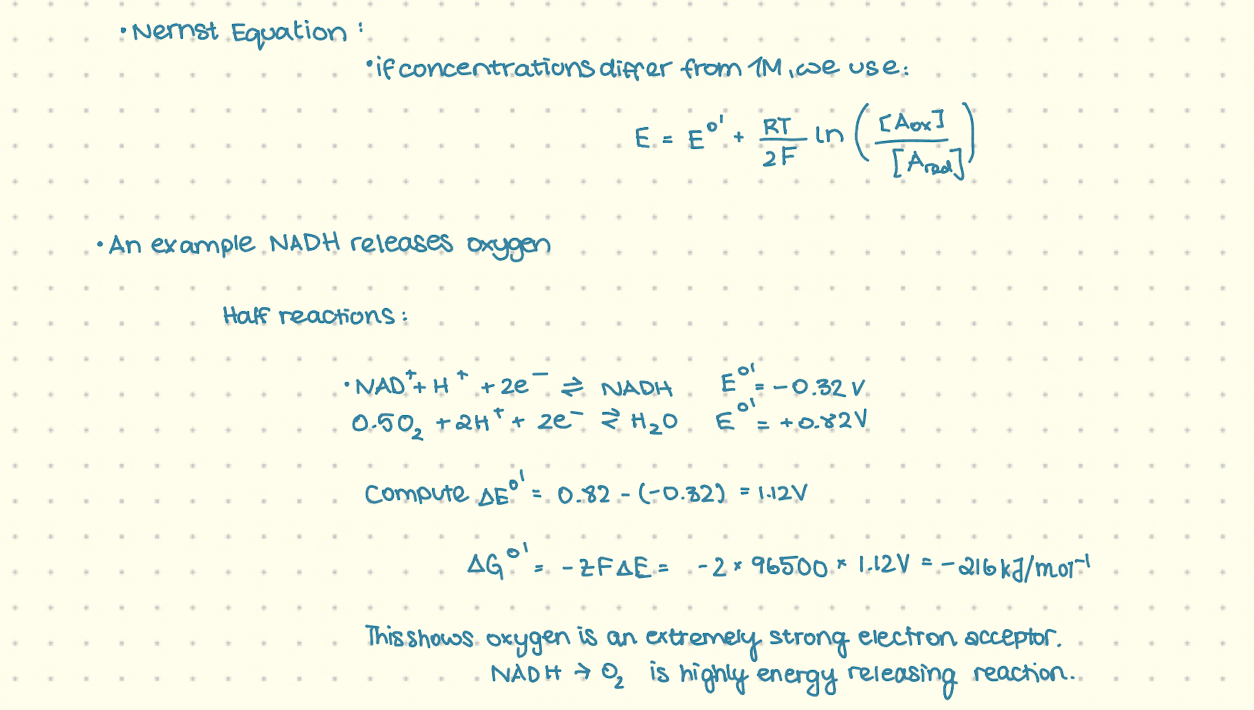 • Nernst Equation :
• if concentrations differ from 1M, we use:
E = E⁰' + RT/2F ln ([Aox]/[Ared])
• An example NADH releases oxygen
Half reactions :
• NAD⁺ + H⁺ + 2e⁻ ⇌ NADH E⁰' = -0.32 V
0.5O₂ + 2H⁺ + 2e⁻ ⇌ H₂O E⁰' = +0.82V
Compute ΔE⁰' = 0.82 - (-0.32) = 1.12V
ΔG⁰' = -zFΔE = -2 × 96500 × 1.12V = -216 kJ/mol⁻¹
This shows oxygen is an extremely strong electron acceptor.
NADH → O₂ is highly energy releasing reaction.